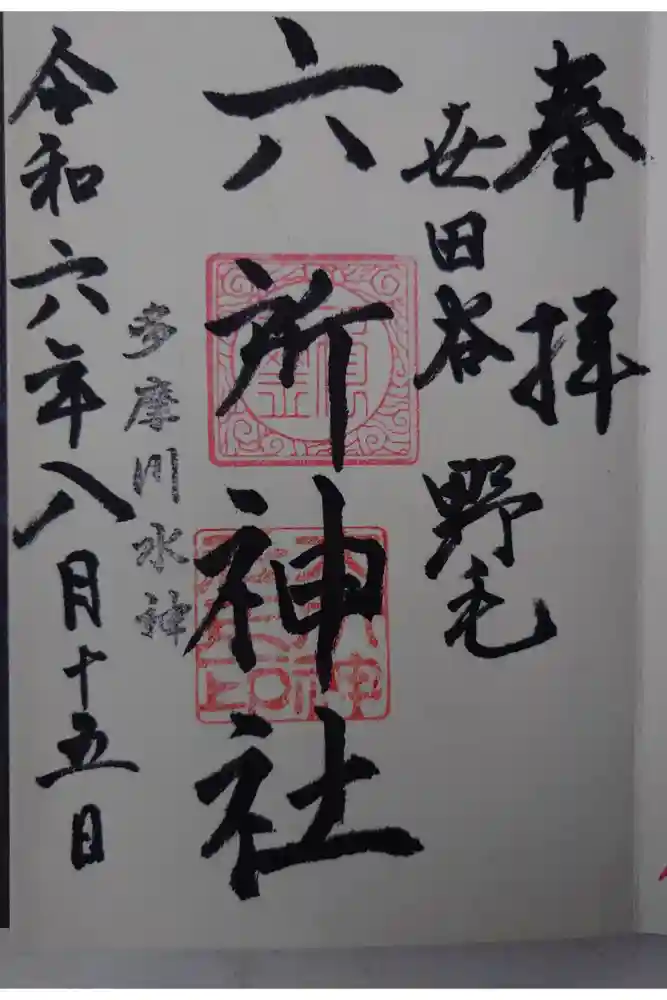 奉拝
世田谷 野毛
六所神社
多摩川水神
令和六年八月十五日